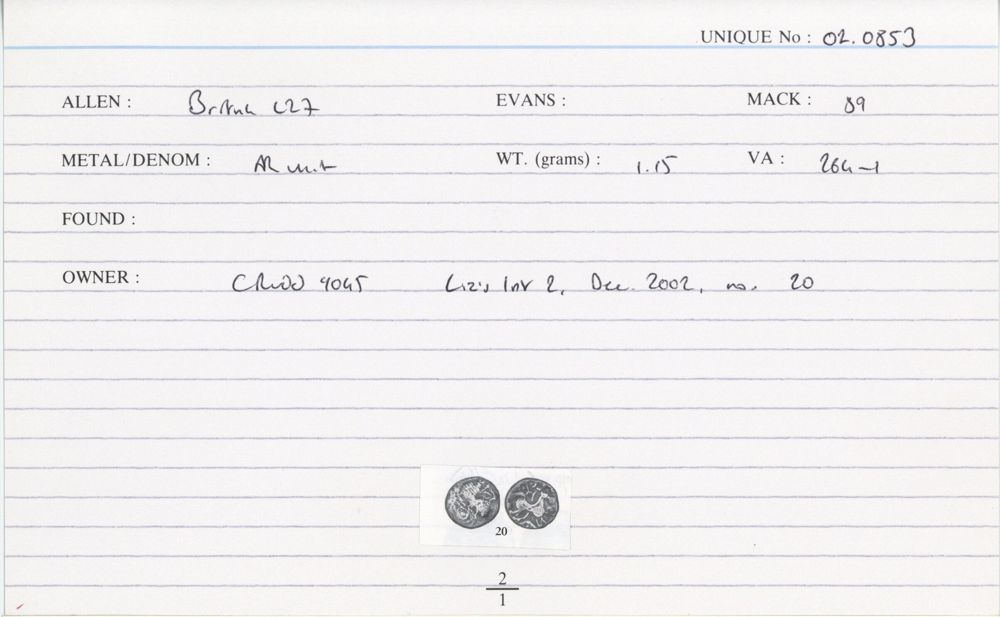 UNIQUE No : 02.0853
ALLEN : British L27 EVANS : MACK : 89
METAL/DENOM : AR unit WT. (grams) : 1.15 VA : 264-1
FOUND :
OWNER : Liz's Inv 2, Dec. 2002, no. 20
20
2
1